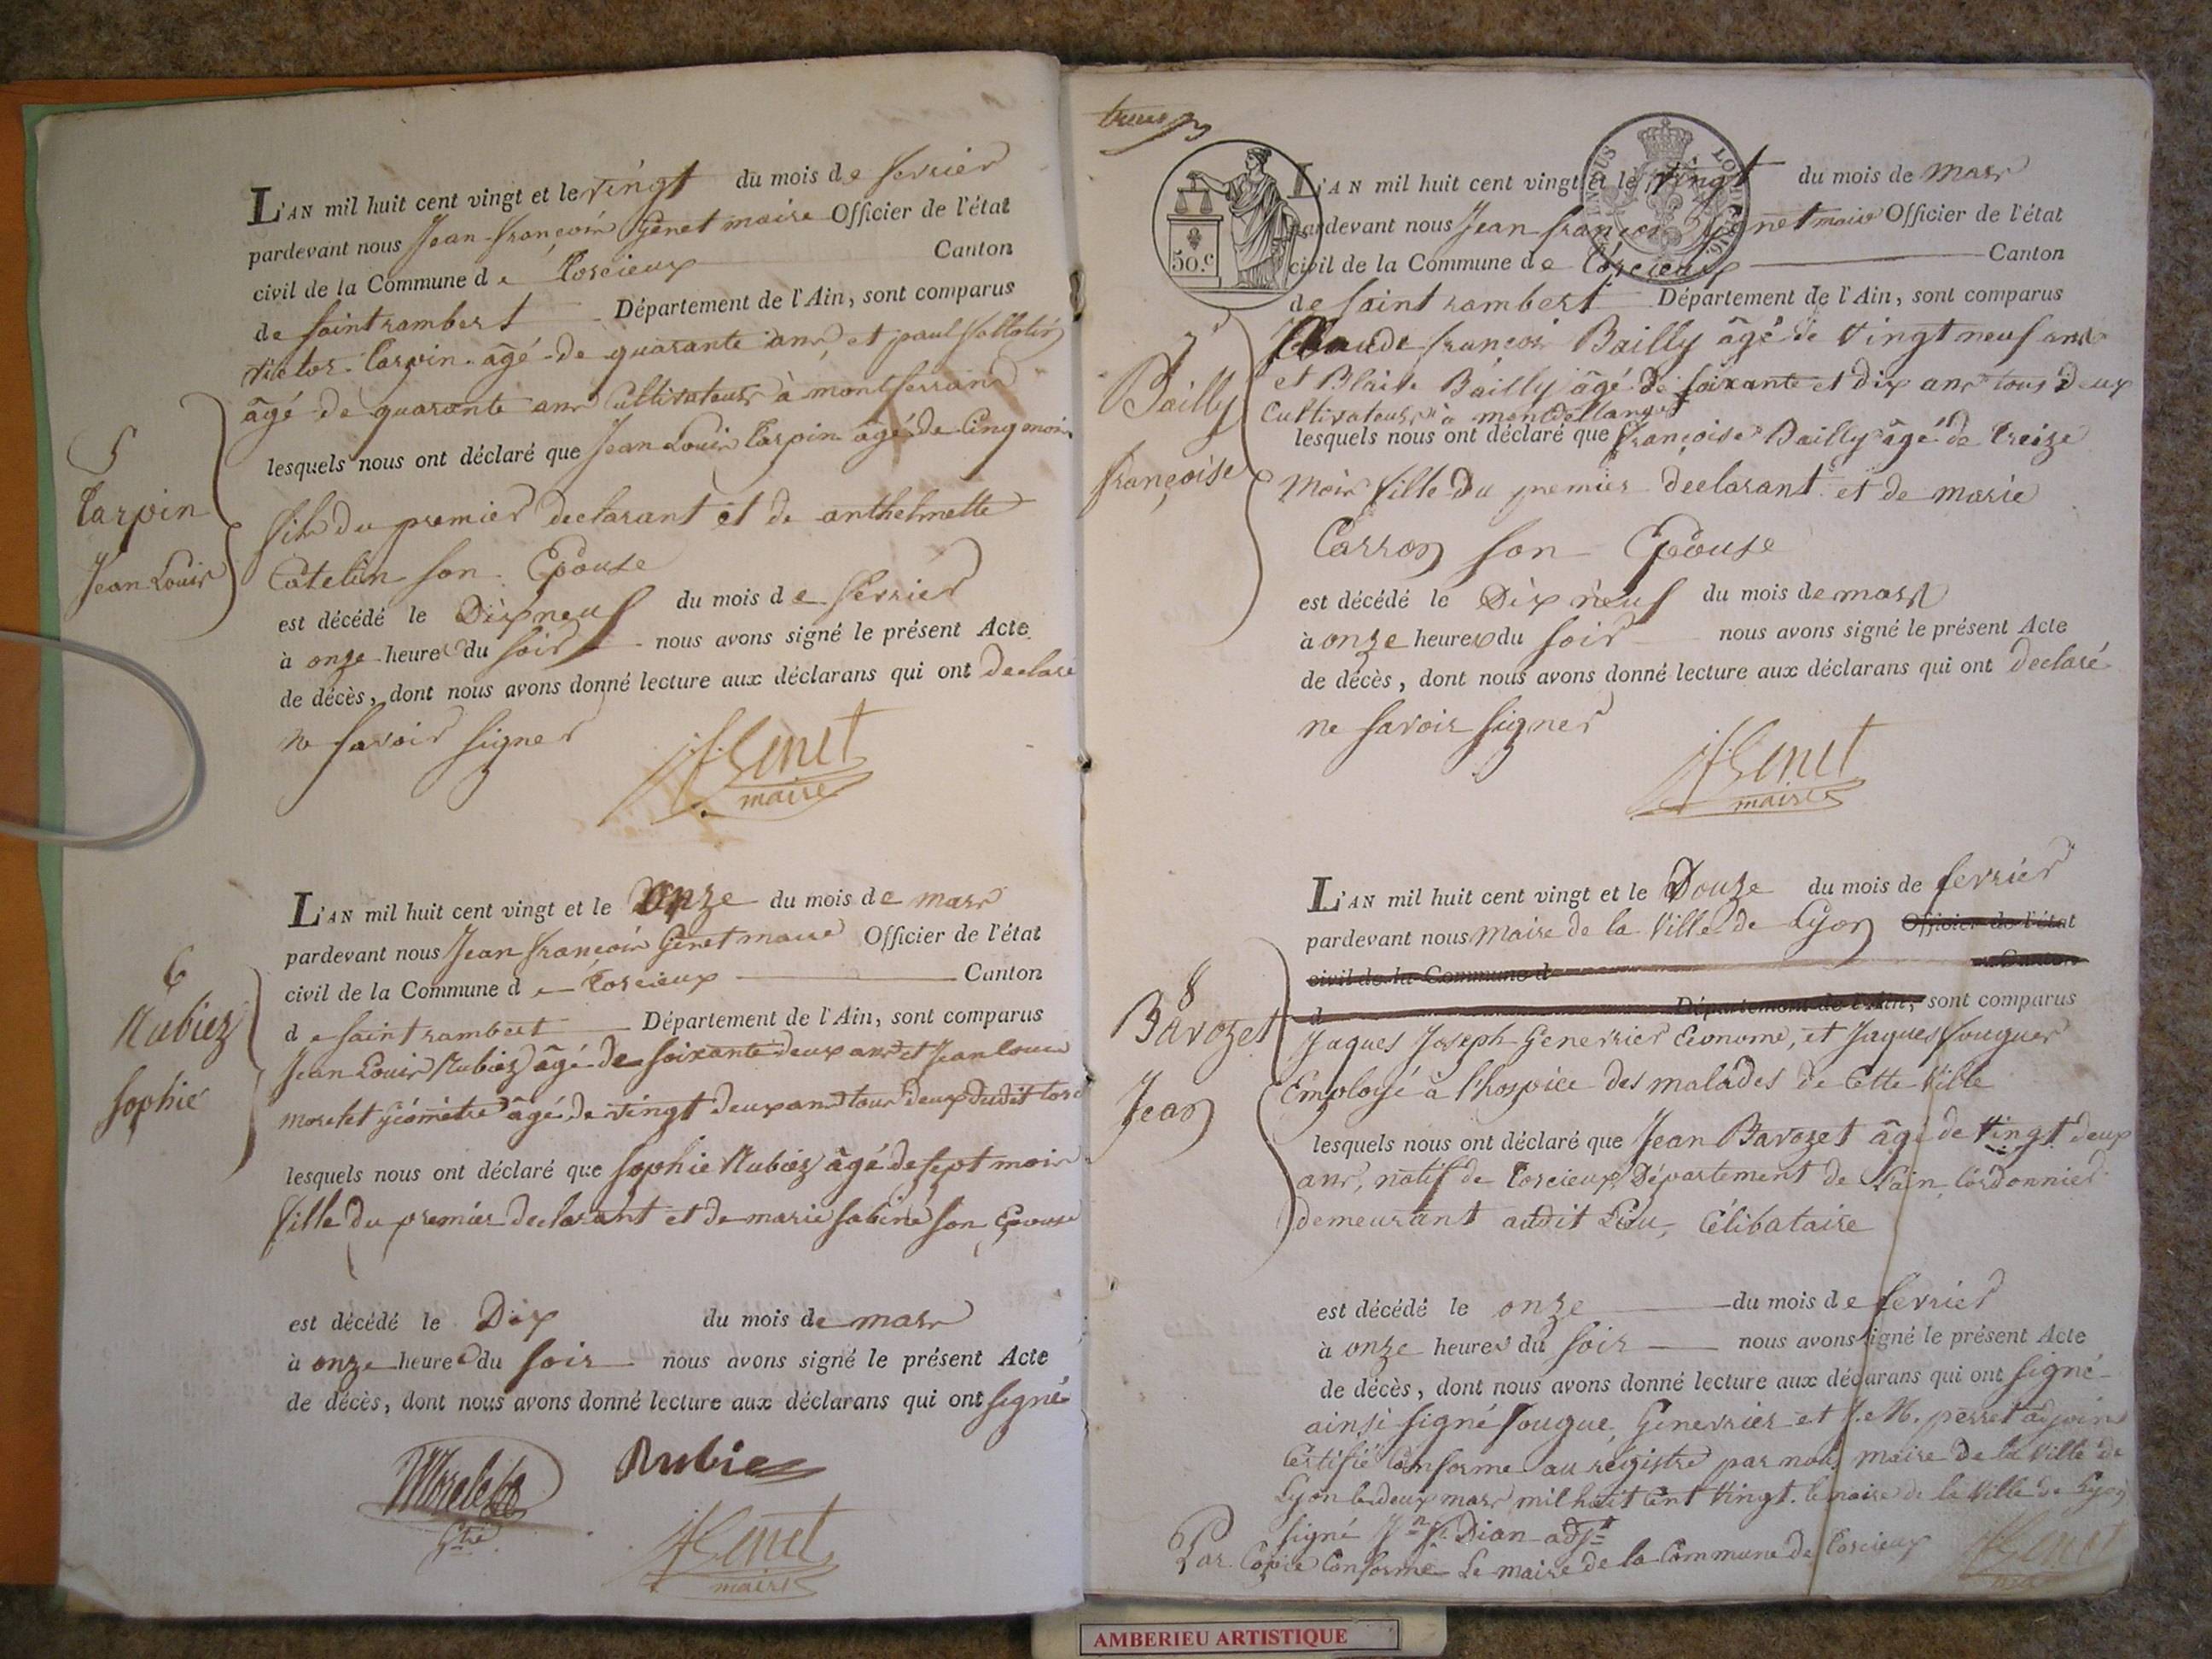 L'AN mil huit cent vingt et le vingt du mois de fevrier
pardevant nous Jean françois Genet maire Officier de l'état
civil de la Commune de torcieux Canton
de saint rambert Département de l'Ain, sont comparus
victor tarpin âgé de quarante ans, et paul
âgé de quarante ans Cultivateurs à montferrand
lesquels nous ont déclaré que Jean Louis tarpin âgé de Cinq mois
fils du premier declarant et de anthelmette
Catelin son Epouse
est décédé le Dix neuf du mois de fevrier
à onze heures du soir nous avons signé le présent Acte
de décès, dont nous avons donné lecture aux déclarans qui ont declaré
ne savoir signer
JF Genet
maire
5
tarpin
Jean Louis
L'AN mil huit cent vingt et le Onze du mois de mars
pardevant nous Jean françois Genet maire Officier de l'état
civil de la Commune de torcieux Canton
de saint rambert Département de l'Ain, sont comparus
Jean Louis Rubiez âgé de soixante deux ans et Jean Louis
morelet géomètre âgé de vingt deux ans tous deux dudit torc
lesquels nous ont déclaré que sophie Rubiez âgé de sept mois
fille du premier declarant et de marie sabine son Epouse
est décédé le Dix du mois de mars
à onze heures du soir nous avons signé le présent Acte
de décès, dont nous avons donné lecture aux déclarans qui ont signé
Morelet
Rubie
JF Genet
maire
6
Rubiez
sophie
L'AN mil huit cent vingt et le vingt du mois de mars
pardevant nous Jean françois Genet maire Officier de l'état
civil de la Commune de torcieux Canton
de saint rambert Département de l'Ain, sont comparus
Claude françois Bailly âgé de vingt neuf ans
et Blaise Bailly âgé de soixante et dix ans tous deux
Cultivateurs à
lesquels nous ont déclaré que françoise Bailly âgé de treize
mois fille du premier declarant et de marie
Carron son Epouse
est décédé le Dix neuf du mois de mars
à onze heures du soir nous avons signé le présent Acte
de décès, dont nous avons donné lecture aux déclarans qui ont declaré
ne savoir signer
JF Genet
maire
50.c
7
Bailly
françoise
L'AN mil huit cent vingt et le Douze du mois de fevrier
pardevant nous maire de la Ville de Lyon Officier de l'état
civil de la Commune d Canton
d Département de l'Ain, sont comparus
Jaques Joseph Genevrier Econome, et Jaques
Employé à l'hospice des malades de Cette Ville
lesquels nous ont déclaré que Jean Bavozet âgé de vingt deux
ans, natif de torcieux Département de Lain, Cordonnier
demeurant audit Lieu, Célibataire
est décédé le onze du mois de fevrier
à onze heures du soir nous avons signé le présent Acte
de décès, dont nous avons donné lecture aux déclarans qui ont signé
ainsi signé fougue, Genevrier et perret adjoint
Certifié Conforme au régistre par nous maire de la Ville de
Lyon le deux mars mil huit Cent vingt. le maire de la Ville de Lyon
signé Dian adjt
Par Copie Conforme Le maire de la Commune de torcieux JF Genet
8
Bavozet
Jean
AMBERIEU ARTISTIQUE